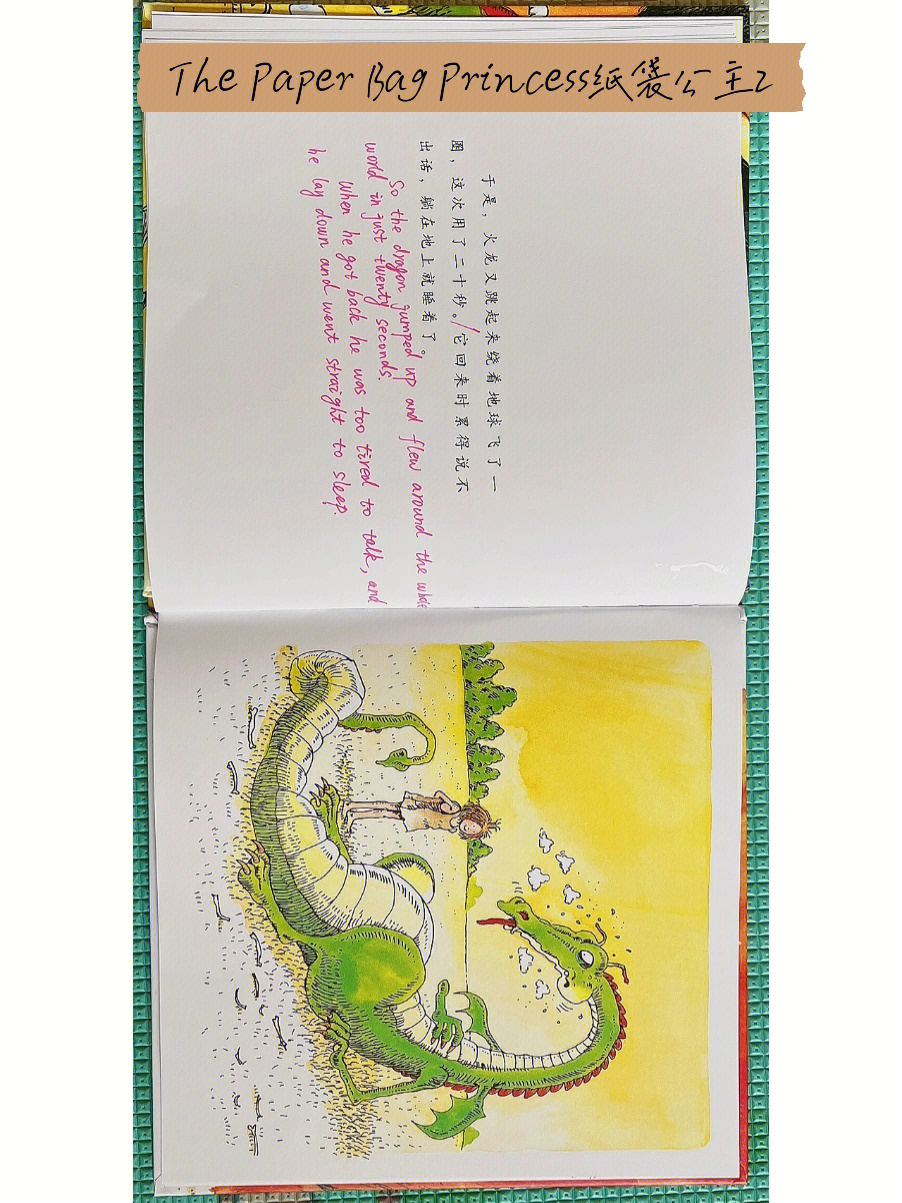 The Paper Bag Princess纸袋公主2
于是，火龙又跳起来绕着地球飞了一
圈，这次用了二十秒。/它回来时累得说不
出话，躺在地上就睡着了。
So the dragon jumped up and flew around the whole
world in just twenty seconds.
When he got back he was too tired to talk, and
he lay down and went straight to sleep.